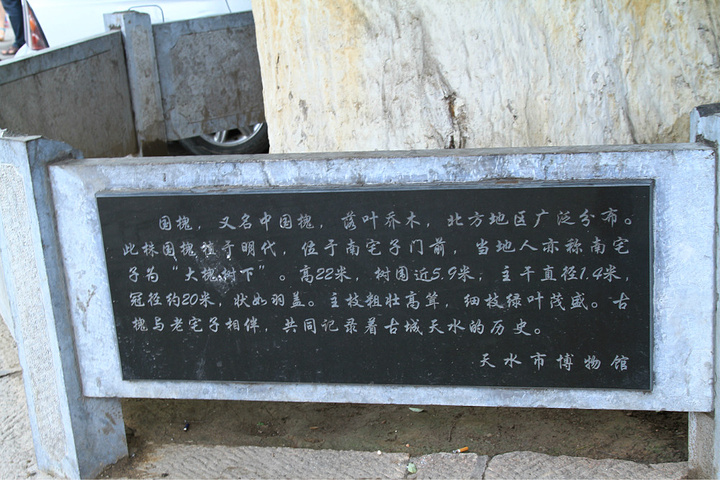 国槐，又名中国槐，落叶乔木，北方地区广泛分布。
此株国槐植于明代，位于南宅子门前，当地人亦称南宅
子为“大槐树下”。高22米，树围近5.9米，主干直径1.4米，
冠径约20米，状如羽盖。主枝粗壮高耸，细枝绿叶茂盛。古
槐与老宅子相伴，共同记录着古城天水的历史。
天水市博物馆